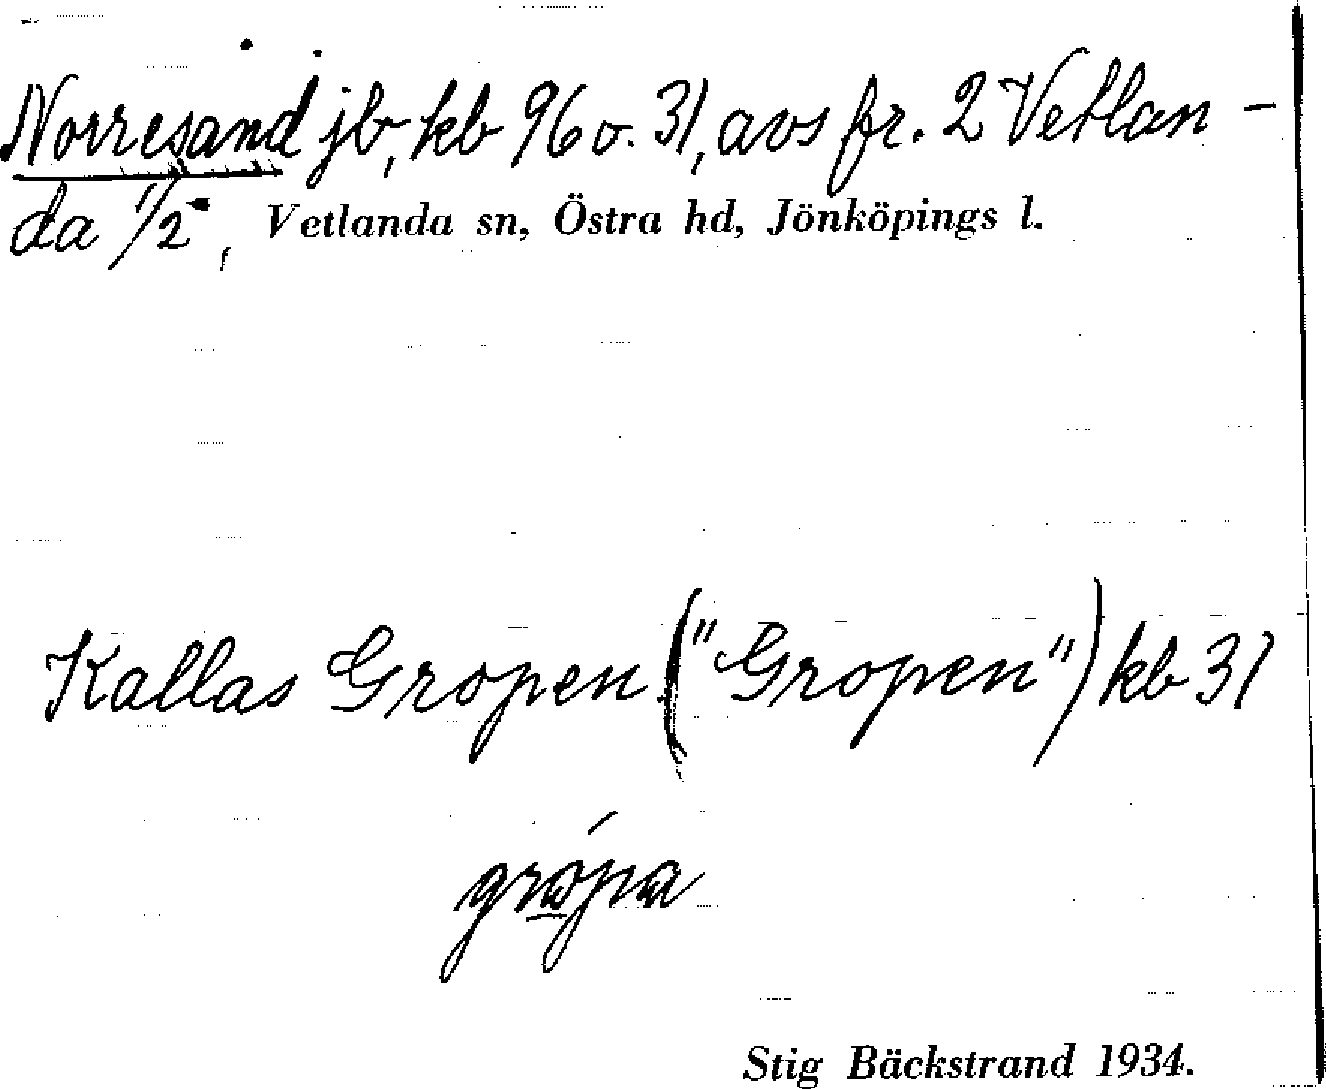 Norresand jb, kb 96 o. 31, avs fr. 2 Vetlan-
da 1/2, Vetlanda sn, Östra hd, Jönköpings l.
Kallas Gropen ("Gropen") kb 31
Stig Bäckstrand 1934.